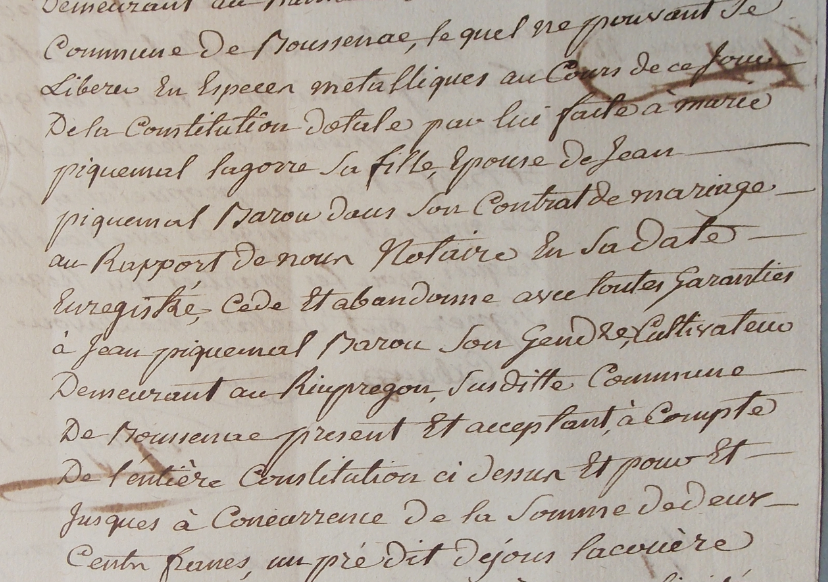 Demeurant au
Commune de Boussenac, lequel ne pouvant se
Liberer En Especes metalliques au Cours de ce Jour
De la Constitution dotale par lui faite à marie
piquemal lagorre sa fille, Epouse de Jean
piquemal Barou dans son Contrat de mariage
au Rapport de nous Notaire En sa date
Enregistré, cede Et abandonne avec toutes Garanties
à Jean piquemal Barou son Gendre, Cultivateur
Demeurant au Rinpregon, susditte Commune
De Boussenac present Et acceptant, à Compte
De l'entière Constitution ci dessus Et pour Et
Jusques à Concurrence de la Somme de deux
Cents francs, un pré dit dejous lacouère